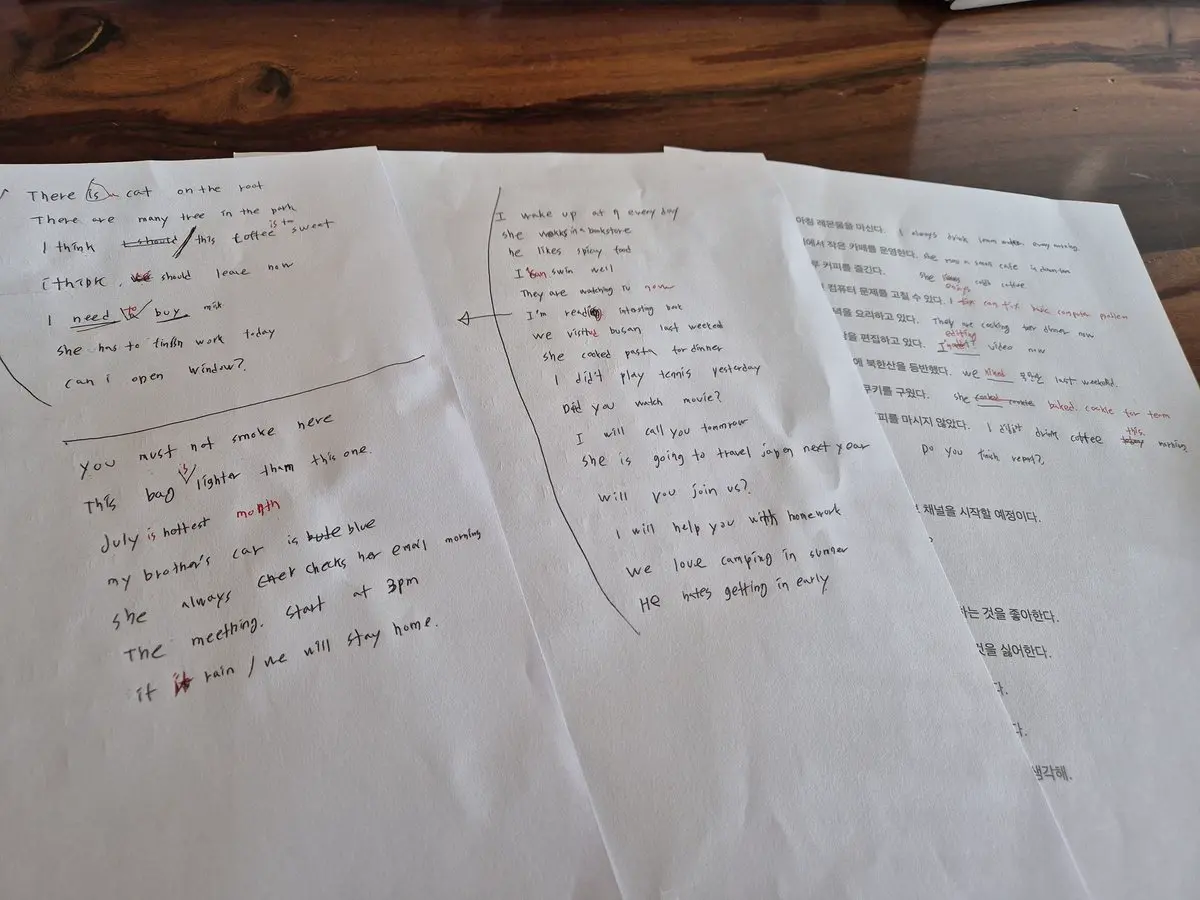 There is a cat on the roof
There are many tree in the park
I think should / this coffee is to sweet
i think, we should leave now
I need to buy milk
she has to finish work today
can i open window?
you must not smoke here
This bag is lighter tham this one.
July is hottest month
my brother's car is bule blue
she always cher checks her email morning
The meething. start at 3pm
if it rain / we will stay home.
I wake up at 7 every day
she works in a bookstore
he likes spicy food
I can swin well
They are watching TV now
I'm reading intersing book
we visited busan last weeked
she cooked pasta for dinner
I did't play tennis yesterday
Did you watch movie?
I will call you tommrow
she is going to travel japen next year
will you join us?
I will help you with homework
we love camping in summer
He hates getting in early.
아침 레몬물을 마신다. I always drink lemon water every morning.
에서 작은 카페를 운영한다. she runs a small cafe in down town
커피를 즐긴다. she enjoys cold coffee
컴퓨터 문제를 고칠 수 있다. I fix can fix computer problem
녁을 요리하고 있다. They are cooking dinner now
을 편집하고 있다. I'm editing video now
에 북한산을 등반했다. we hiked 북한산 last weekend.
쿠키를 구웠다. she cooked cookie baked cookie for
피를 마시지 않았다. I didn't drink coffee today this morning.
Do you finish report?
채널을 시작할 예정이다.
하는 것을 좋아한다.
것을 싫어한다.
다.
다.
생각해.